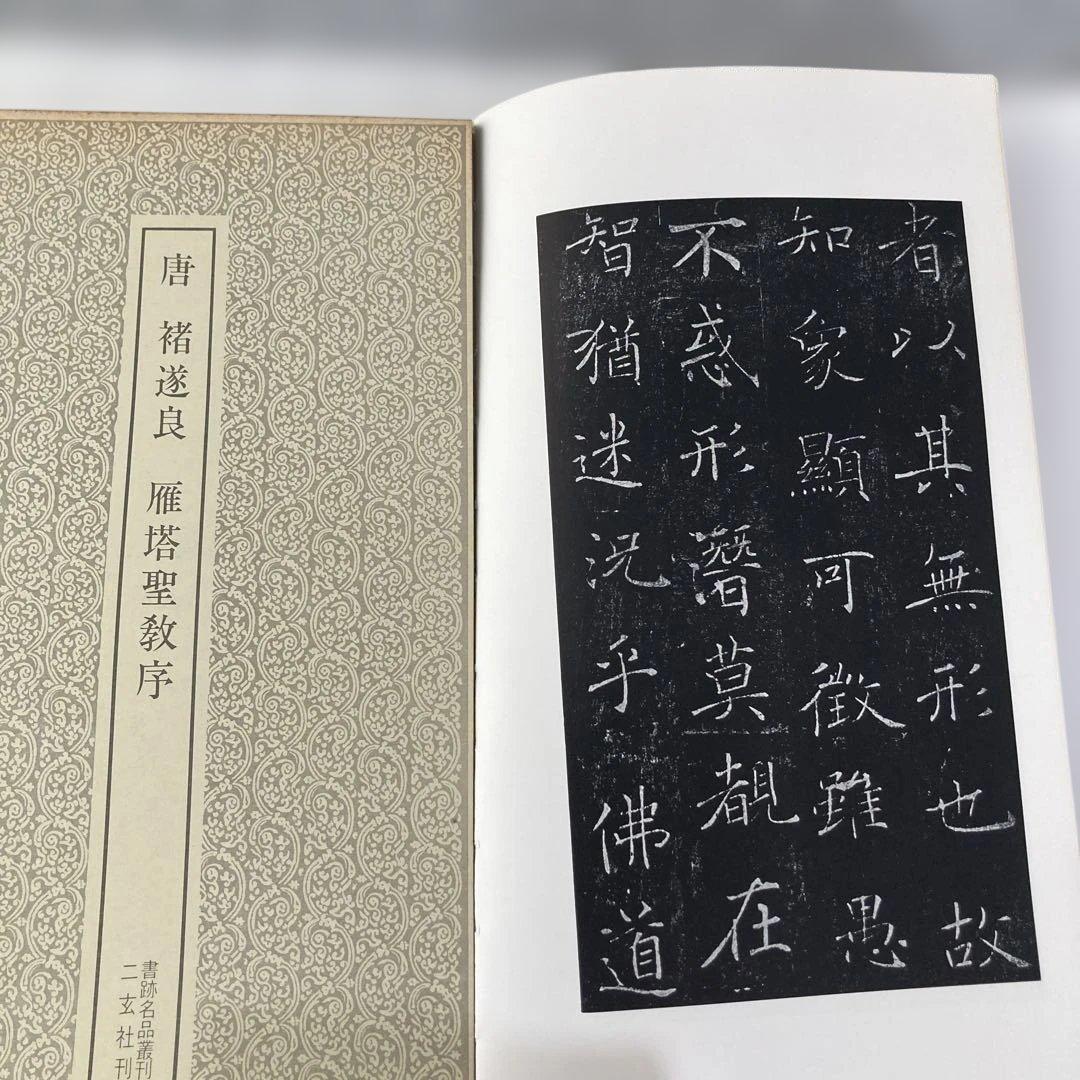 唐 褚遂良 雁塔聖教序
書跡名品叢刊
二玄社刊
者以其無形也故
知象顯可徵雖愚
不惑形潛莫覩在
智猶迷況乎佛道